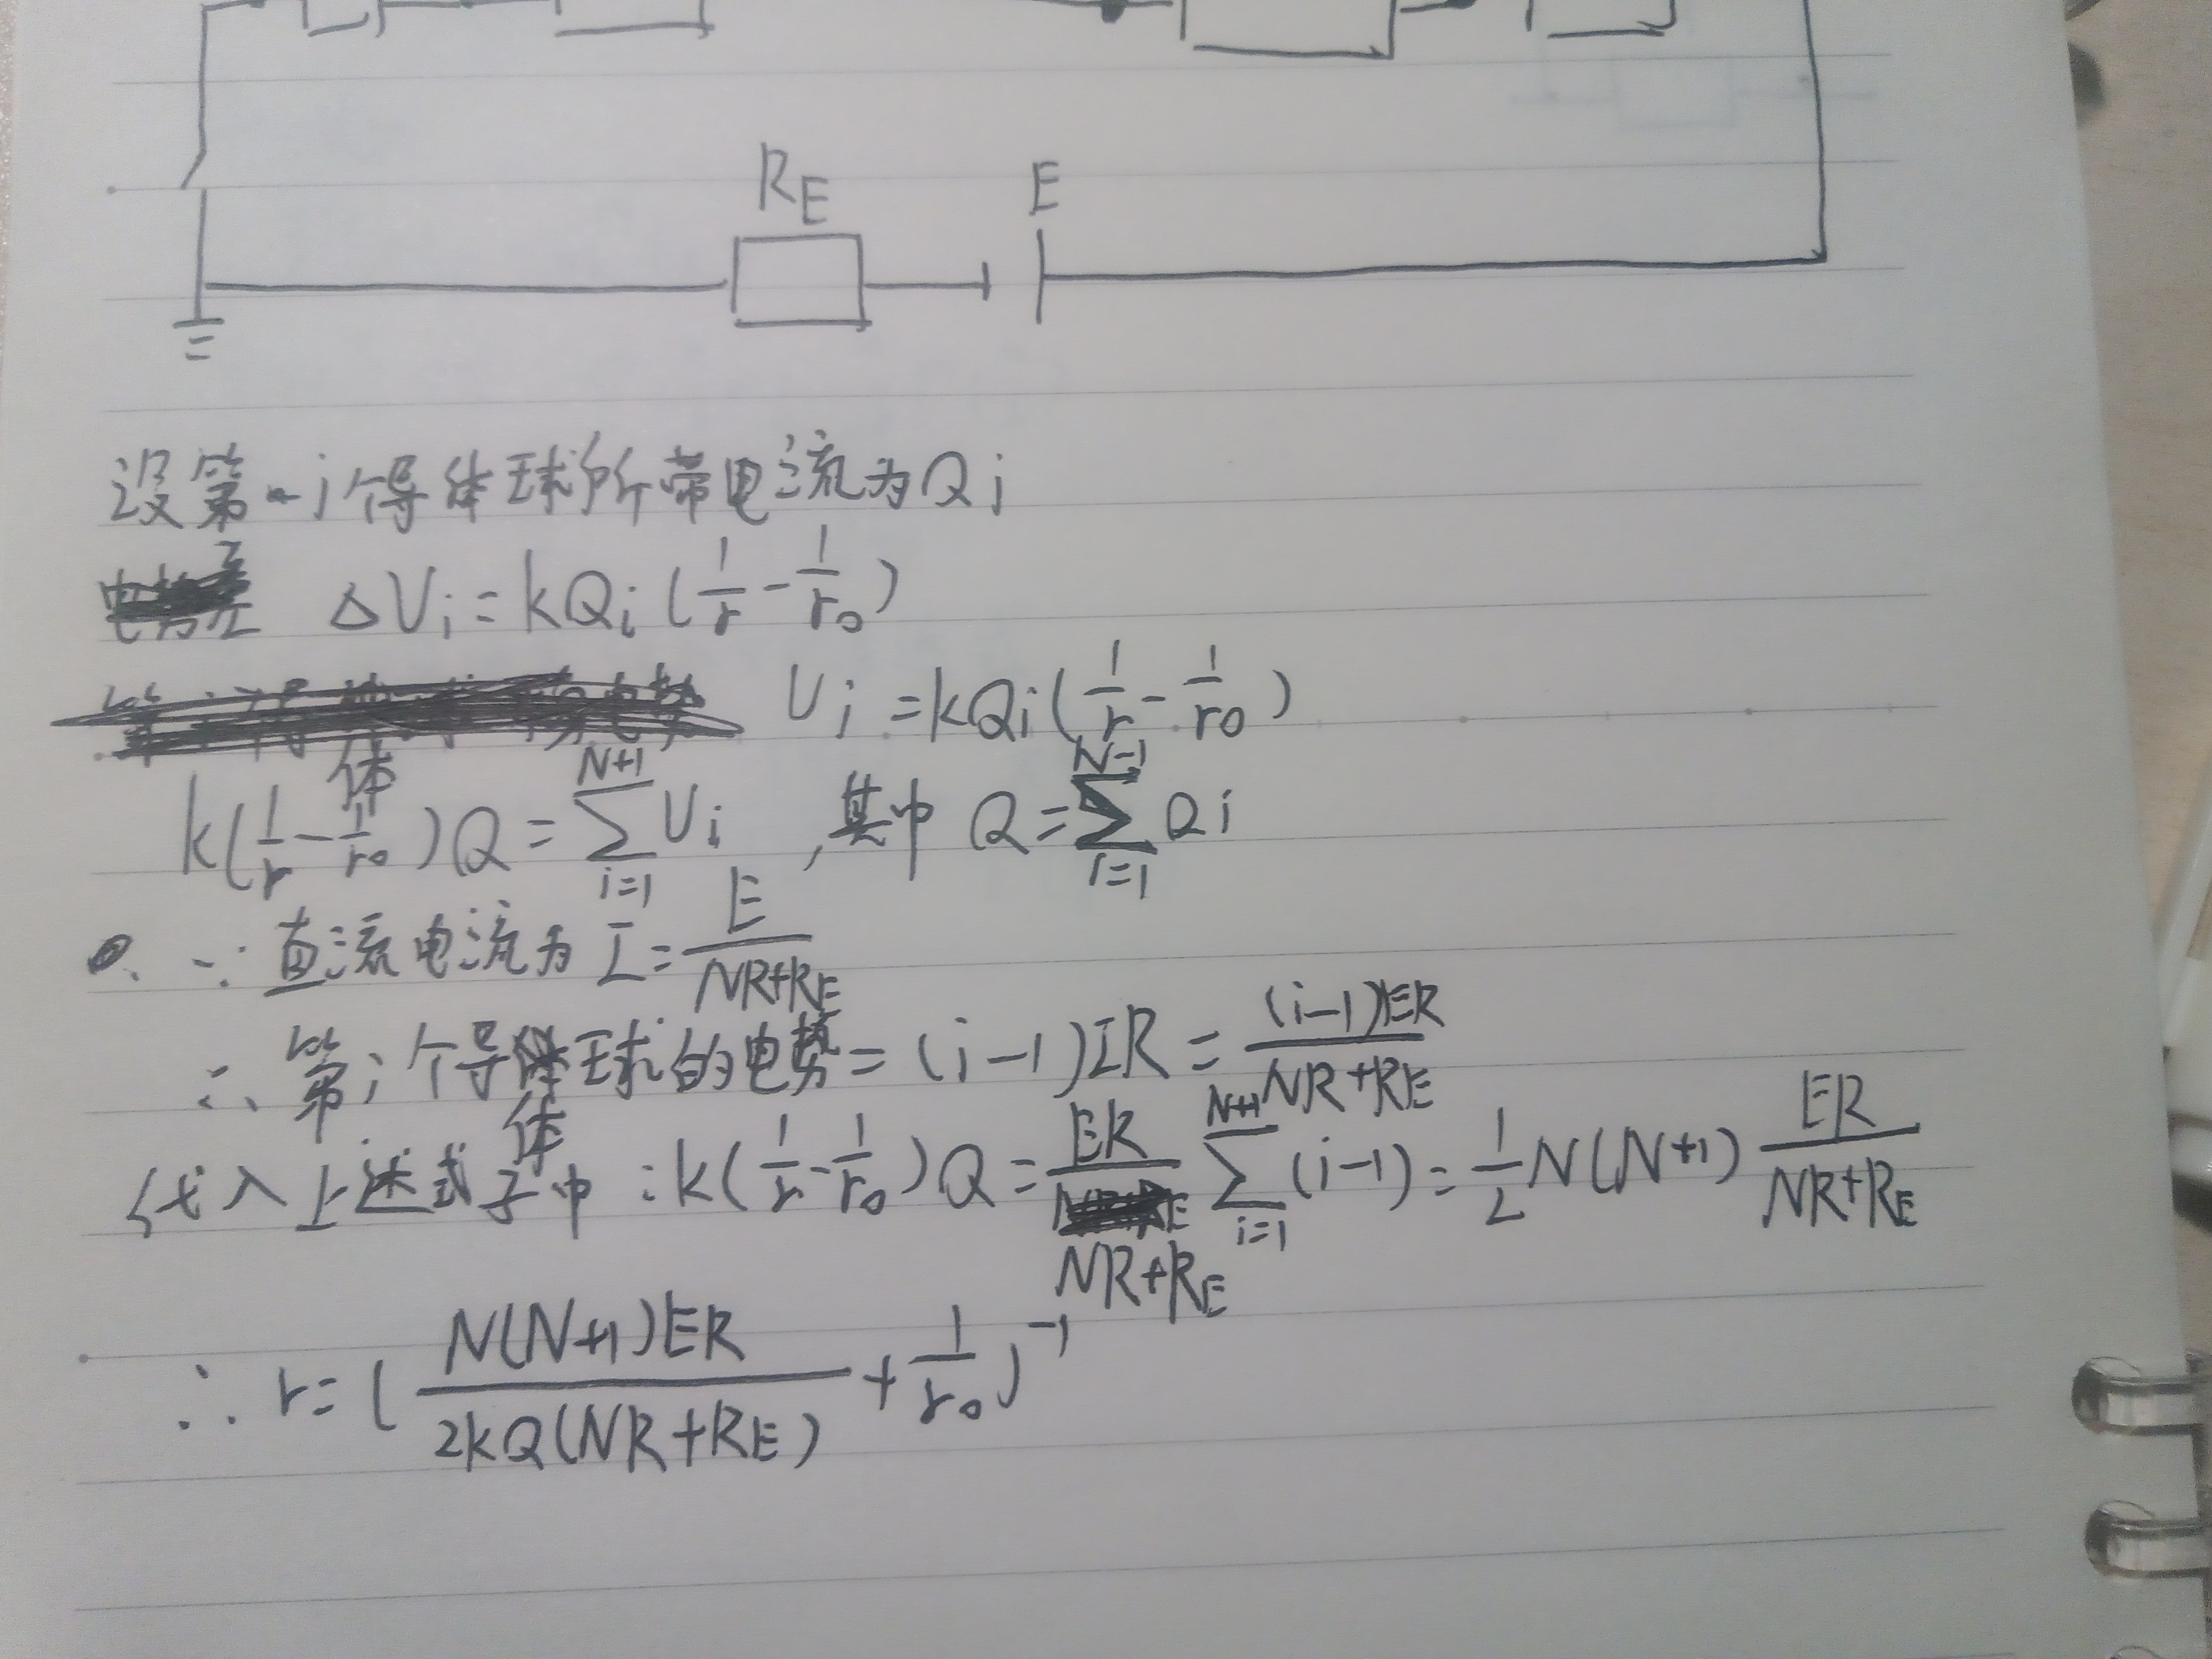 R_E E
设第i个导体球所带电流为Qi
电势差 ΔU_i = kQ_i(1/r - 1/r_0)
U_i = kQi(1/r - 1/r0)
k(1/r - 1/r0)Q = ∑_{i=1}^{N+1} U_i , 其中 Q = ∑_{i=1}^{N-1} Qi
∵ 直流电流为 I = E/(NR+R_E)
∴ 第i个导体球的电势 = (i-1)IR = (i-1)ER/(NR+RE)
代入上述式子中:k(1/r - 1/r_0)Q = ER/(NR+R_E) ∑_{i=1}^{N+1} (i-1) = 1/2 N(N+1) ER/(NR+R_E)
∴ r = (N(N+1)ER/(2kQ(NR+RE)) + 1/r_0)^{-1}